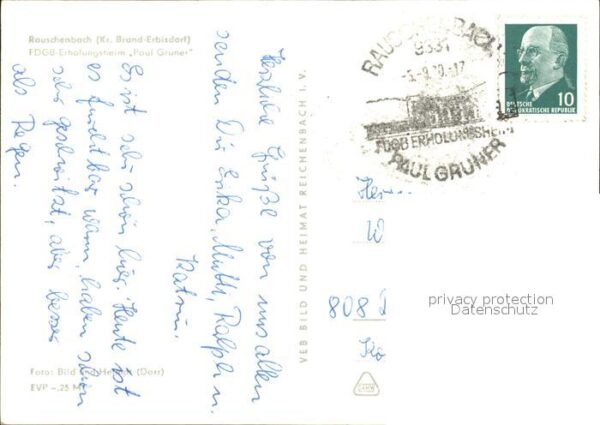 Rauschenbach (Kr. Brand-Erbisdorf)
FDGB-Erholungsheim „Paul Gruner“
Herzliche Grüße von uns allen
senden Dir Erika, Mutti, Ralph u.
Katrin.
Es ist sehr schön hier. Heute ist
es furchtbar warm, haben schon
sehr geschwitzt, aber besser
als Regen.
Foto: Bild und Heimat (Dorr)
EVP -.25 M
VEB BILD UND HEIMAT REICHENBACH I. V.
RAUSCHENBACH
9331
-17
FDGB ERHOLUNGSHEIM
PAUL GRUNER
10
DEUTSCHE
DEMOKRATISCHE REPUBLIK
808
privacy protection
Datenschutz